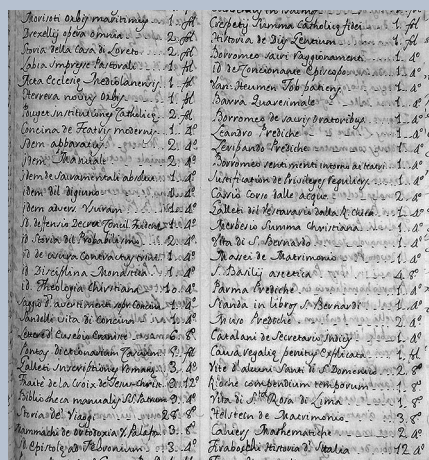 Morisoti Orbis maritimus 1. fol
Drexelij opera omnia 2. fol
Storia della Casa di Loreto 2. fol
Labia Impresse Pastorali 1. fol
Acta Ecclesię Mediolanensis 1. fol
Herrera novus Orbis 1. fol
Pouget Institutiones Catholicę 2. fol
Concina de Teatris modernis 1. 4º
Idem apparatus 2. 4º
Idem 2. 4º
Idem de Sacramentali absolut. 1. 4º
Idem del digiuno 4º
Idem advers. Usuram 1. 4º
Id. defensio Decret. Concil. Trident. 1. 4º
Id. Storia del Probabilismo 2. 4º
Id. de usura Contractus trini 1. 4º
Id. Disciplina Monastica 1. 4º
Id. Theologia Christiana 10. 4º
Saggio d'avvertimenti sopr. Concina 1. 4º
Sandelli Vita di Concina 1. 4º
Lettere d'Eusebio Eraniste 6. 8º
Pontas Dictionarium Casuum 3. fol
Zalleti Inscriptiones Romanę 3. 4º
Traité de la Croix de Jesus-Christ 12º
Bibliotheca manualis SS. Patrum 9. 4º
Storia de' Viaggi 28. 8º
Mammachi de ortodoxia 3. 8º
Id. Epistolę ad Febronium 3. 4º
Crespetij Summa Catholicę fidei 1. fol
Historia de Dijs Gentium 1. fol
Borromeo sacri raggionamenti 1. 4º
Id. de Concionante Episcopo 1. 4º
Job patiens 1. 4º
Barra Quaresimale 1. 4º
Borromeo de sacris oratoribus 1. 4º
Leandro Prediche 1. 4º
Prediche 1. 4º
Borromeo sentimenti intorno ai teatri 1. 4º
Justification de Privileges reguliers 1. 4º
Corso delle acque 2. 4º
Zalleti del Vestarario della R. Chiesa 1. 4º
Summa Christiana 1. 4º
Vita di S. Bernardo 1. 4º
de Matrimonio 1. 4º
S. Basilij ascetica 4. 8º
Parma Prediche 1. 4º
in libros S. Bernardi 1. 4º
Prediche 2. 4º
Catalani de Secretario Indicis 1. 4º
Causa regalię penitus explicata 1. fol
Vite d'alcuni Santi di S. Domenico 2. 8º
compendium temporum 1. 8º
Vita di Sta. Rosa di Lima 1. 8º
Holstein de Matrimonio 3. 8º
Cahiers Mathematiche 2. 4º
Tiraboschi Historia d'Italia 12. 4º